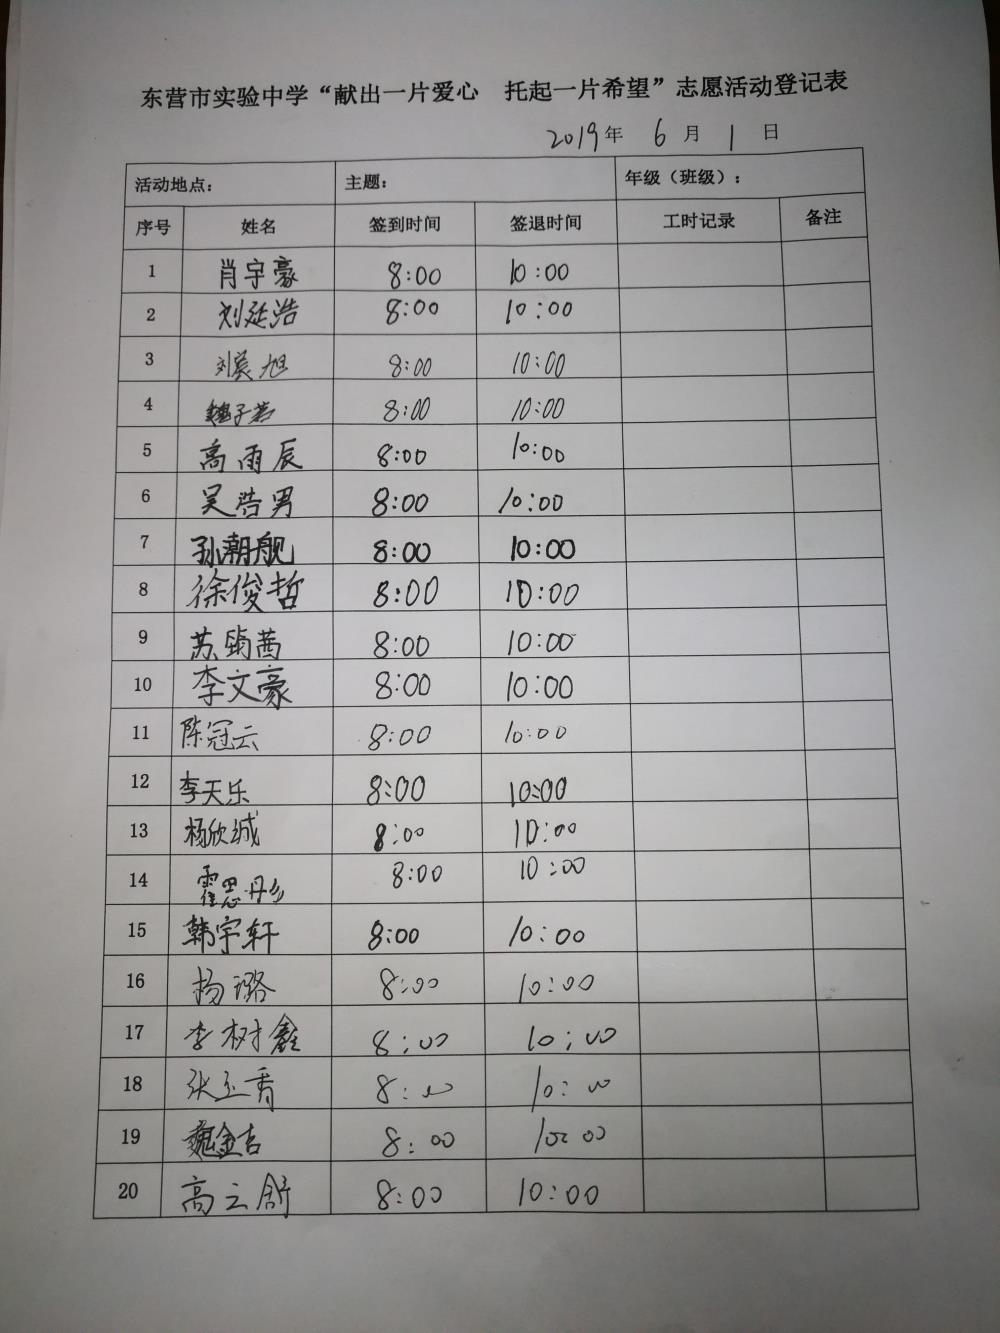 东营市实验中学“献出一片爱心 托起一片希望”志愿活动登记表
2019年 6 月 1 日
活动地点: 主题: 年级（班级）:
序号 姓名 签到时间 签退时间 工时记录 备注
1 肖宇豪 8:00 10:00
2 刘延浩 8:00 10:00
3 刘昊旭 8:00 10:00
4 魏子若 8:00 10:00
5 高雨辰 8:00 10:00
6 吴浩男 8:00 10:00
7 孙潮舰 8:00 10:00
8 徐俊哲 8:00 10:00
9 苏 茜 8:00 10:00
10 李文豪 8:00 10:00
11 陈冠云 8:00 10:00
12 李天乐 8:00 10:00
13 杨欣诚 8:00 10:00
14 霍思彤 8:00 10:00
15 韩宇轩 8:00 10:00
16 杨潞 8:00 10:00
17 李树鑫 8:00 10:00
18 张玉香 8:00 10:00
19 魏金吉 8:00 10:00
20 高云舒 8:00 10:00